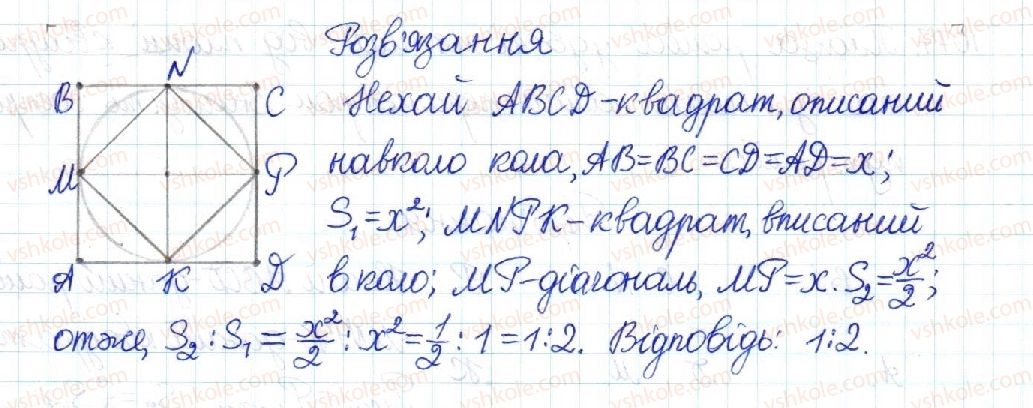 Розв'язання
N
B C Нехай ABCD-квадрат, описаний
M P навколо кола, AB=BC=CD=AD=x;
S₁=x²; MNPK-квадрат, вписаний
A K D в коло; MP-діагональ, MP=x. S₂=x²/2;
отже, S₂:S₁=x²/2:x²=1/2:1=1:2. Відповідь: 1:2.